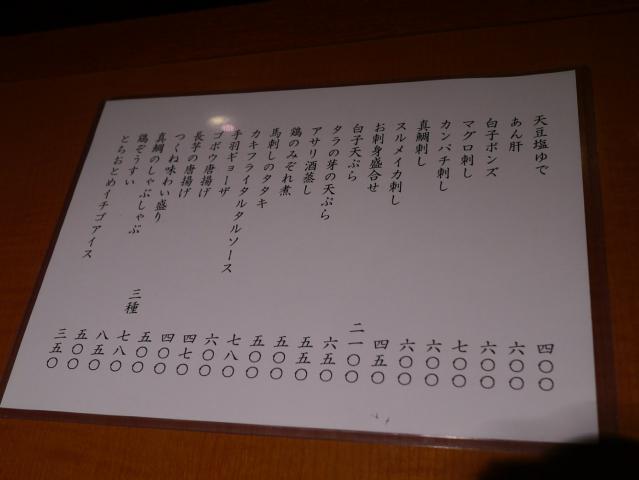 天豆塩ゆで 四〇〇
あん肝 六〇〇
白子ポンズ 六〇〇
マグロ刺し 七〇〇
カンパチ刺し 六〇〇
真鯛刺し 六〇〇
スルメイカ刺し 四五〇
お刺身盛合せ 二一〇〇
白子天ぷら 六五〇
タラの芽の天ぷら 五五〇
アサリ酒蒸し 五〇〇
鶏のみぞれ煮 五〇〇
馬刺しのタタキ 七八〇
カキフライタルタルソース 六〇〇
手羽ギョーザ 四七〇
ゴボウ唐揚げ 四〇〇
長芋の唐揚げ 五〇〇
つくね味わい盛り 三種 七八〇
真鯛のしゃぶしゃぶ 八五〇
鶏ぞうすい 五〇〇
とちおとめイチゴアイス 三五〇